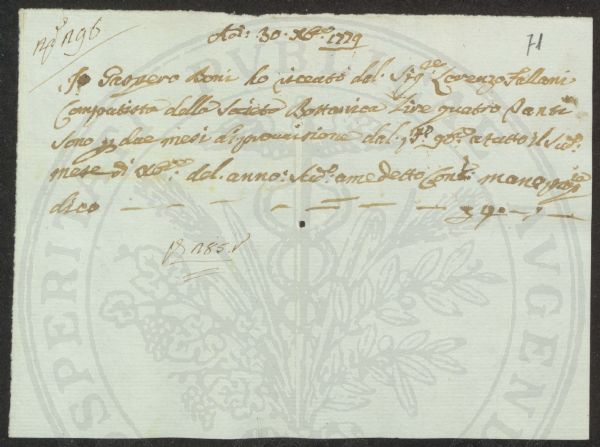 N.º 196
Adi: 30. Xbre. 1779
71
Io Gaspero Boni ho riceuto dal. Sig.re Lorenzo Fallani
Computista della Società Bottanica Lire quatro e tanti
sono p. due mesi di provisione dal. p.mo 9bre. a tutto il sud.o
mese di Xbre. del. anno: Sud.o a me detto Cont.i mano pro.p
dico — — — — — — — £ 4. — . —